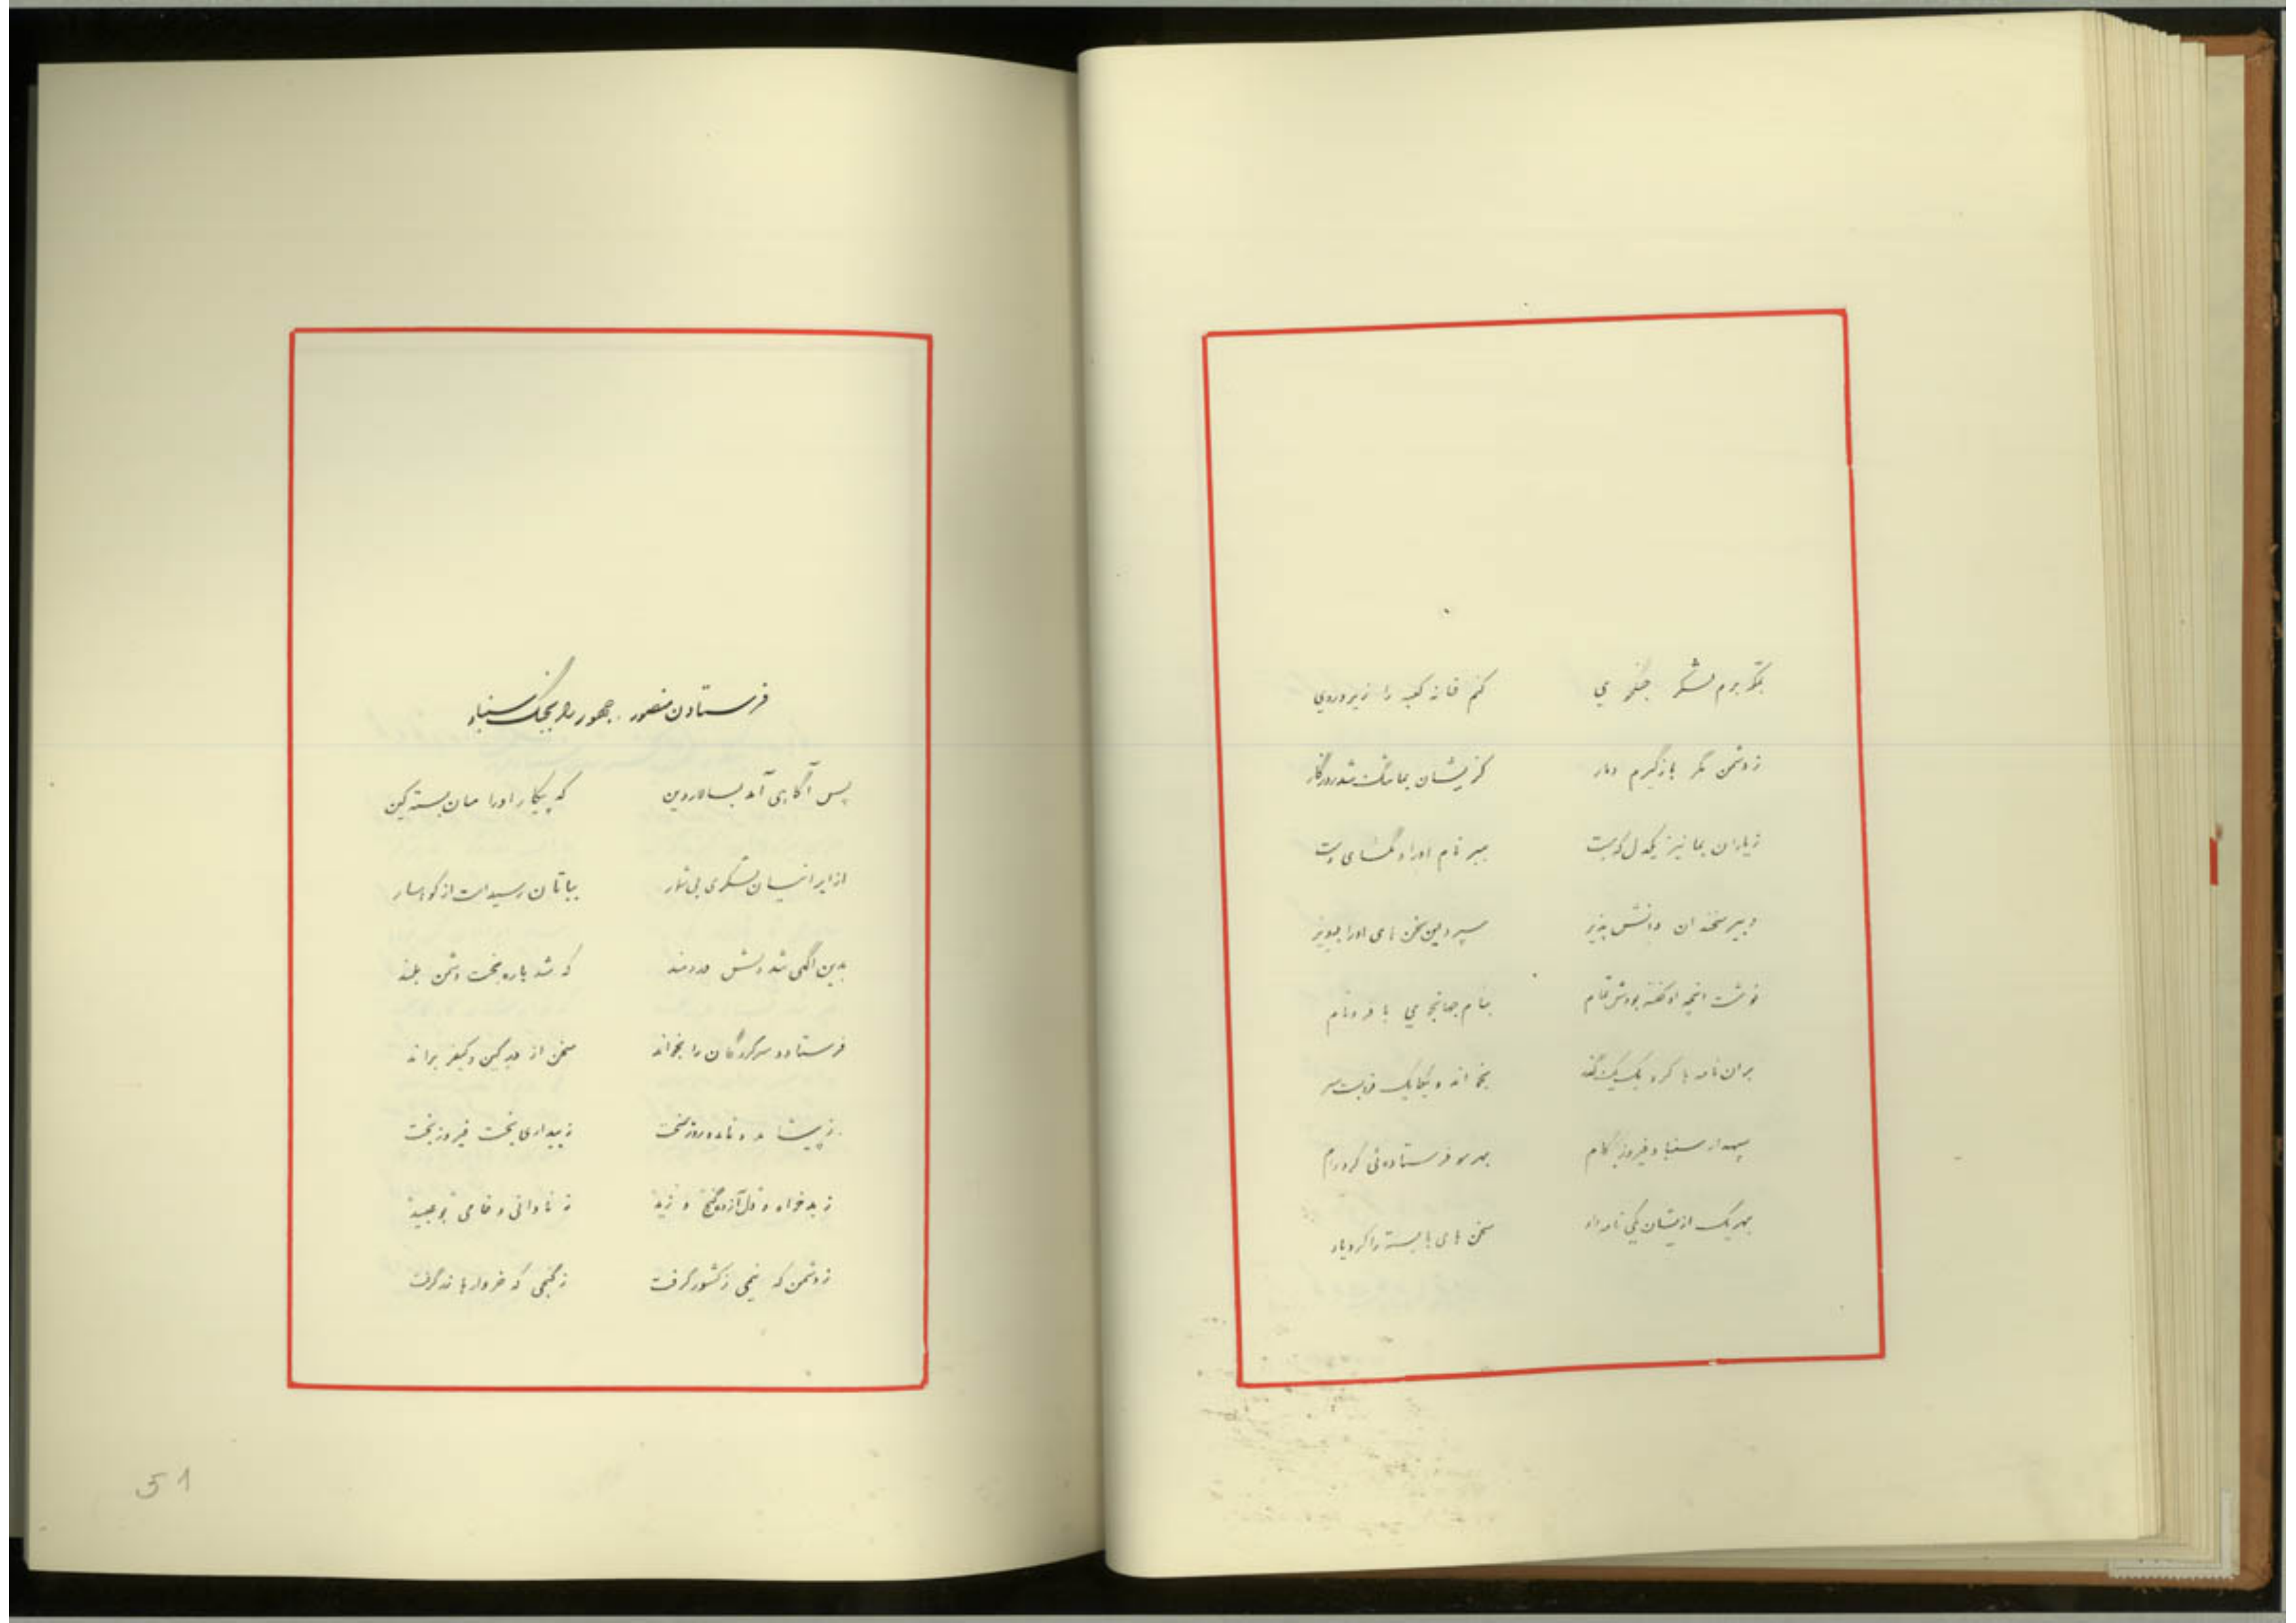 بمکه برم لشکر جنگجوی کنم خانه کعبه را زیر و روی
ز دشمن مگر بازگیرم دمار کزیشان بما شد روزگار
ز یاران بما نیز یکدل که بست ببر نام او را و گشای دست
دبیر سخندان دانش پذیر سخن های او را
نوشت آنچه او گفته بودش تمام بنام جهانجوی با فر و نام
بران نامه ها کرد یک یک بخواند و یکایک
سپهدار سنباد فیروز کام بهر سو فرستاده ئی کرد رام
بهر یک ازیشان یکی نامه داد سخن های بایسته را کرد یاد
فرستادن منصور جمهور را بجنگ سنباد
پس آگاهی آمد بسالار دین که پیکار او را میان بسته کین
از ایرانیان لشکری بی شمار بیابان رسید است از کوهسار
بدین آگهی شد دلش دردمند که شد باره بخت دشمن بلند
فرستاد و سرکردگان را بخواند سخن از در کین و کیفر براند
ز پیشامد و نامده روز سخت ز بیداری بخت فیروز بخت
ز بدخواه و ز نادانی و خامی بوعبید
ز دشمن که نیمی ز کشور گرفت ز گنجی که خروارها زر گرفت
51